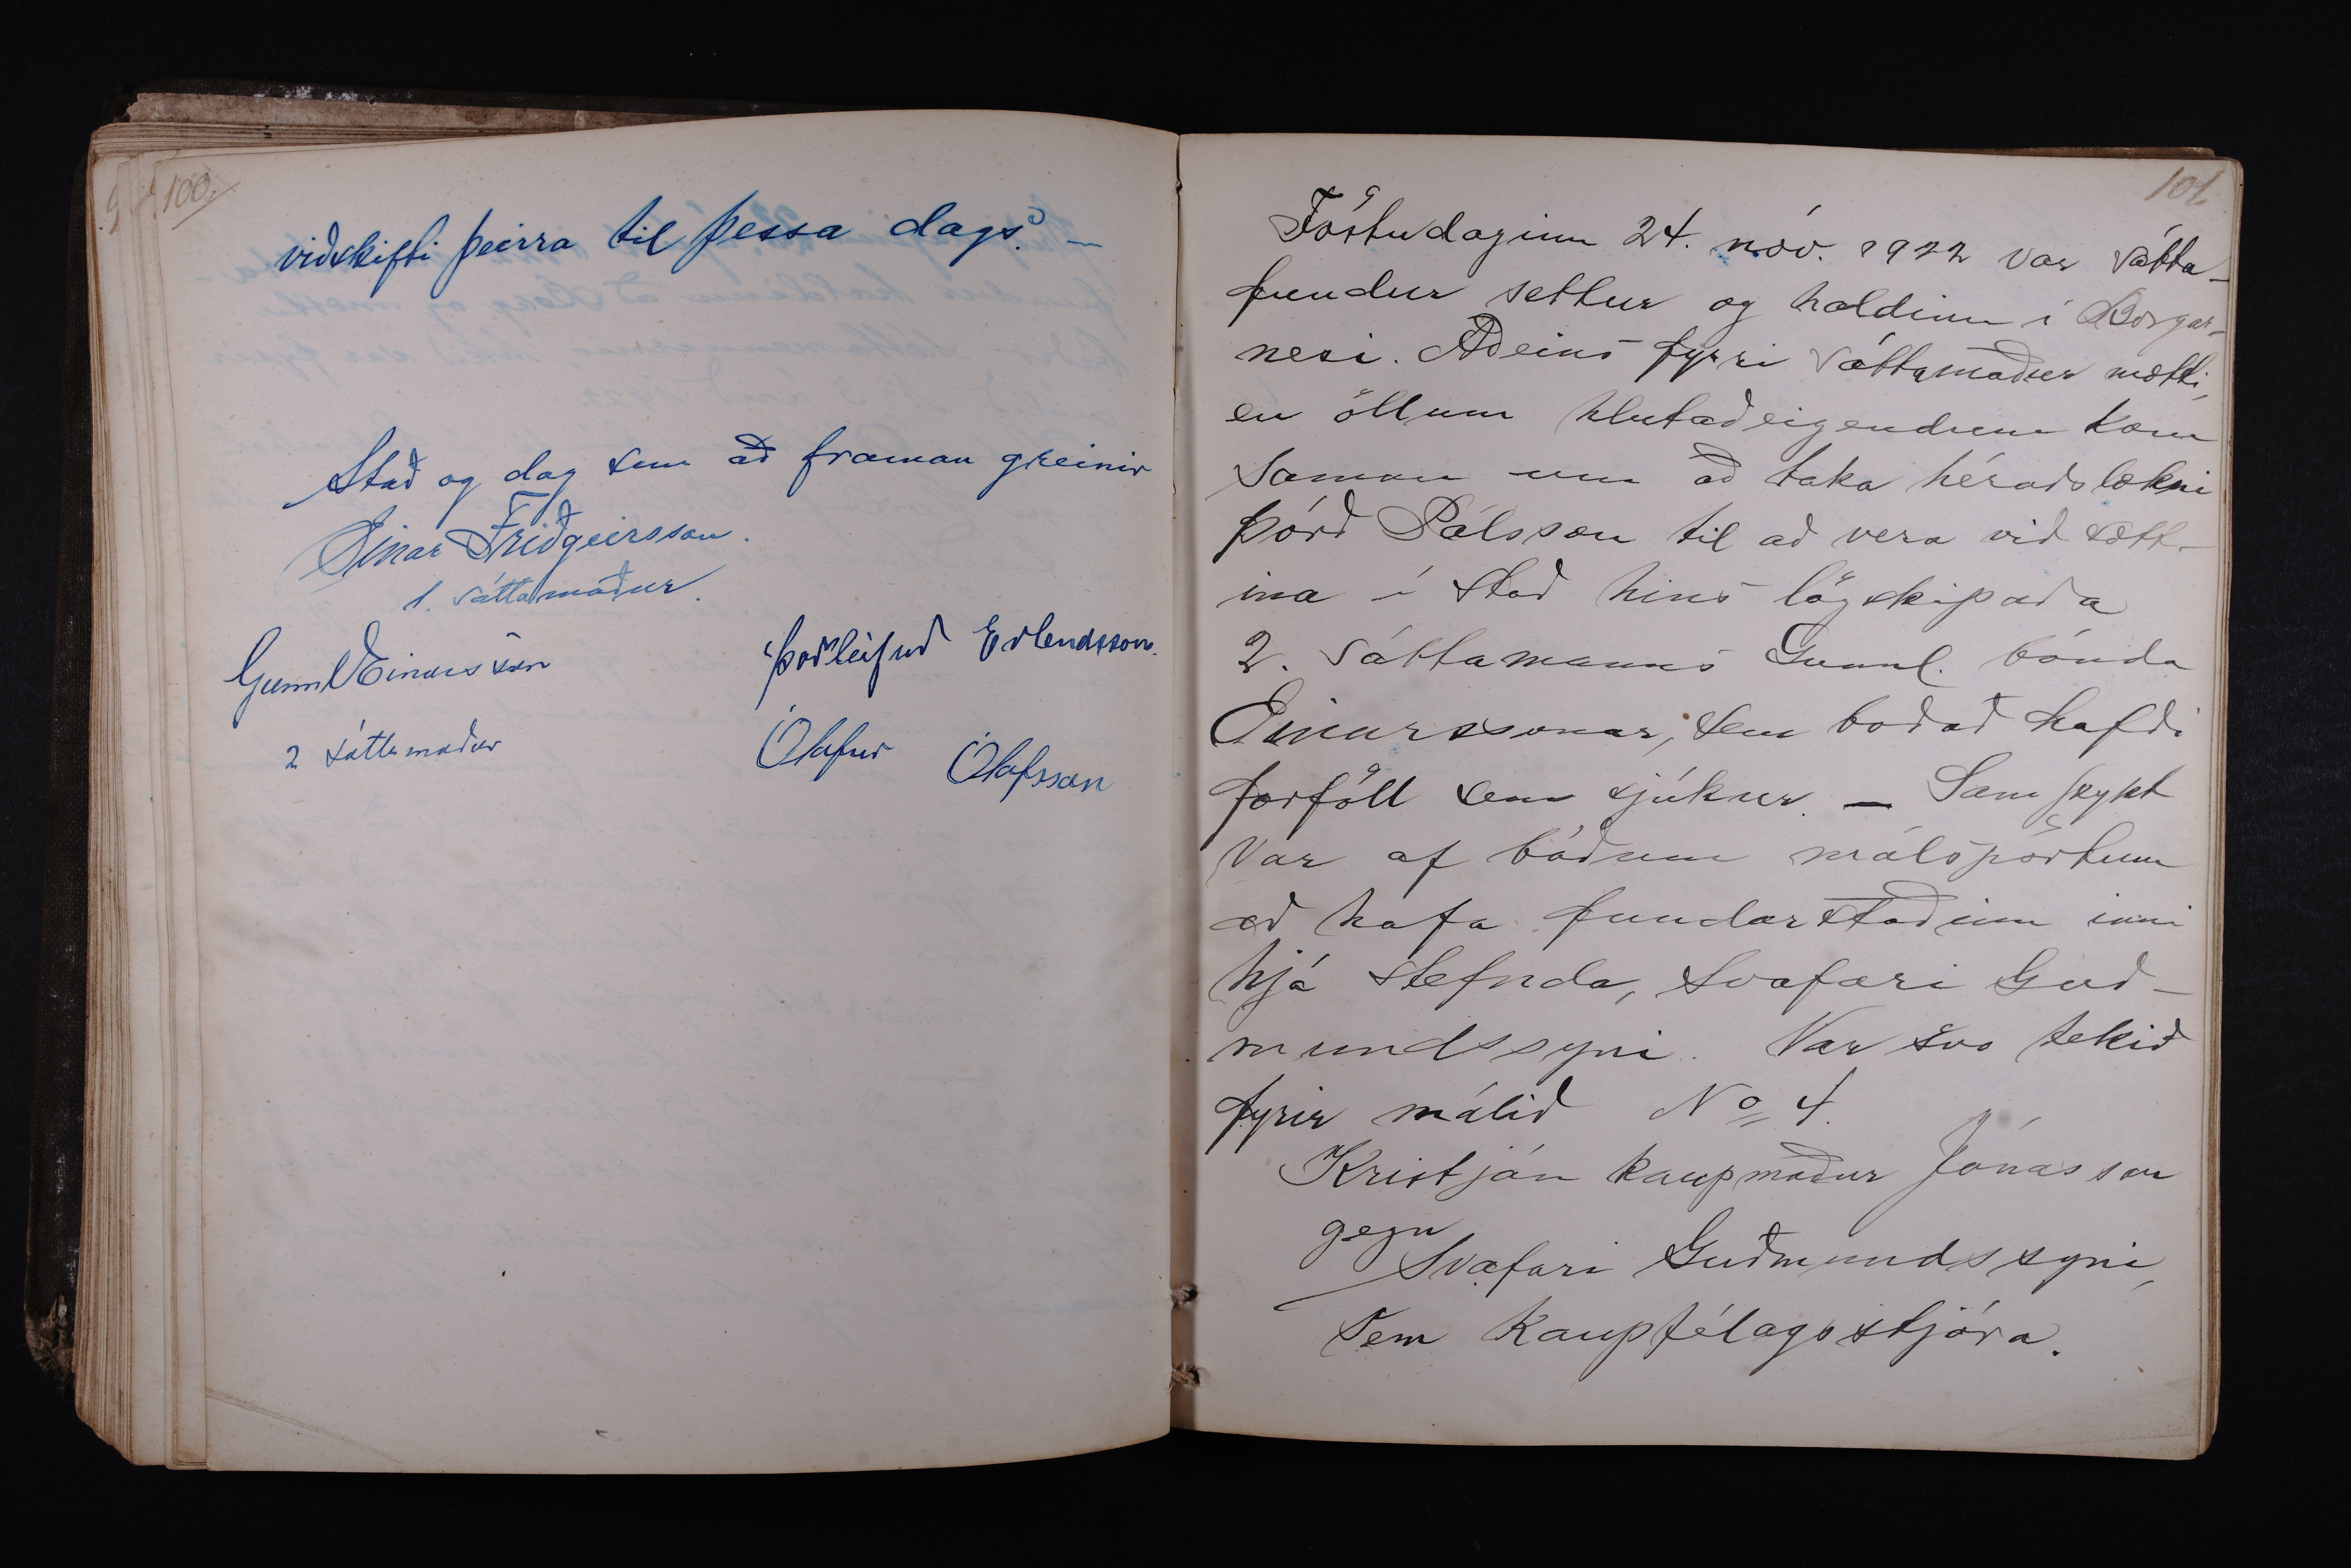 100.
viðskifti þeirra til þessa dags. —
Stað og dag sem að framan greinir
Einar Friðgeirsson.
1. sáttamaður.
Gunnl Einarsson
2 sáttamaður
Þorleifur Erlendsson.
Ólafur Ólafsson
101
Föstudaginn 24. nóv. 1922 var sátta-
fundur settur og haldinn í Borgar-
nesi. Aðeins fyrri sáttamaður mætti,
en öllum hlutaðeigendum kom
saman um að taka héraðslækni
Þórð Pálsson til að vera við sátt-
ina í stað hins lögskipaða
2. sáttamanns Gunnl. bónda
Einarssonar, sem boðað hafði
forföll sem sjúkur. — Samþykt
var af báðum málspörtum
að hafa fundarstaðinn inni
hjá stefnda, Svafari Guð-
mundssyni. Var svo tekið
fyrir málið No 4.
Kristján kaupmaður Jónasson
gegn
Svafari Guðmundssyni,
sem kaupfélagsstjóra.